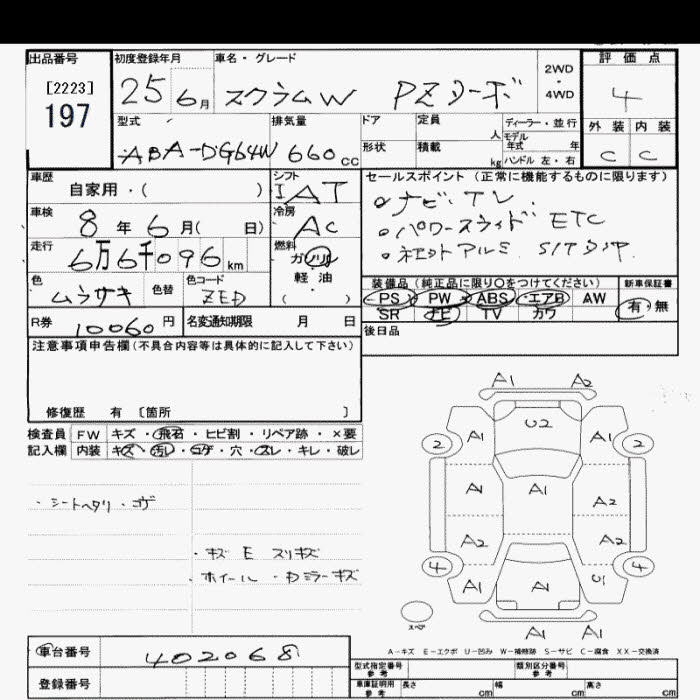 出品番号 初度登録年月 車名・グレード 評価点
[2223]
197
25 6月 スクラムW PZターボ 2WD・4WD 4
型式 排気量 ドア 定員 人 ディーラー・並行 外装 内装
ABA-DG64W 660cc 形状 積載 kg モデル年式 年 ハンドル 左・右 C C
車歴 シフト セールスポイント (正常に機能するものに限ります)
自家用・( ) IAT ・ナビ TV.
車検 冷房 ・パワースライド ETC
8年 6月( 日) AC
走行 燃料
6万6千096km ガソリン
色 色替 色コード 軽・油 装備品 (純正品に限り○をつけてください) 新車保証書
ムラサキ ZED ( ) PS PW ABS エアB AW 有・無
R券 10060円 名変通知期限 月 日 SR TV カワ
後日品
注意事項申告欄(不具合内容等は具体的に記入して下さい)
修復歴 有 〔箇所 〕
検査員 FW キズ・飛石・ヒビ割・リペア跡・×要
記入欄 内装 キズ・汚レ・コゲ・穴・スレ・キレ・破レ
A1 A2
U2
2 A1 A1 2
・シートヘタリ・コゲ
A1 A1 A2
・キズ E スリキズ
A2 A2
ホイール・Dミラーキズ
4 A1 A1 U1 4
A1 A1
スペア
A-キズ E-エクボ U-凹み W-補修跡 S-サビ C-腐食 XX-交換済
車台番号 402068
型式指定番号 参考 類別区分番号 参考
登録番号 車庫証明用 参考 長さ cm 幅 cm 高さ cm